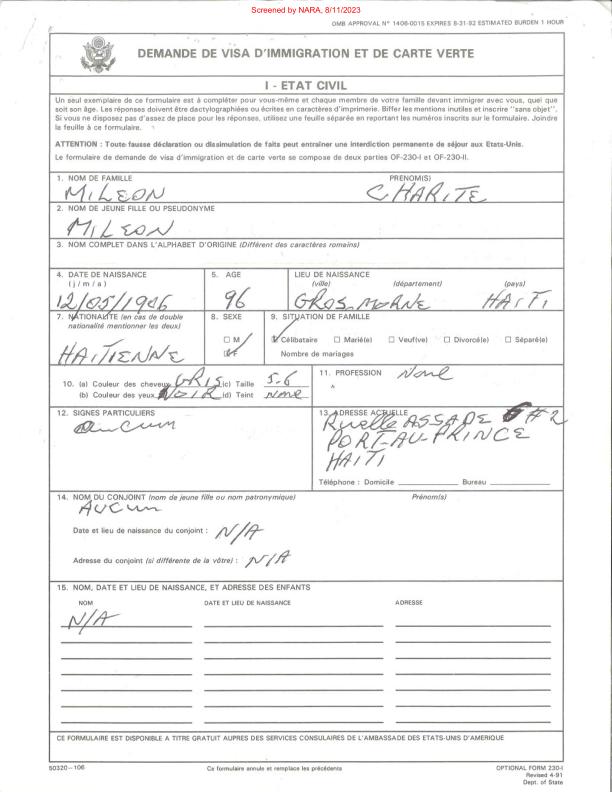 Screened by NARA, 8/11/2023
OMB APPROVAL Nº 1406-0015 EXPIRES 8-31-92 ESTIMATED BURDEN 1 HOUR
DEMANDE DE VISA D'IMMIGRATION ET DE CARTE VERTE
I - ETAT CIVIL
Un seul exemplaire de ce formulaire est à compléter pour vous-même et chaque membre de votre famille devant immigrer avec vous, quel que
soit son âge. Les réponses doivent être dactylographiées ou écrites en caractères d'imprimerie. Biffer les mentions inutiles et inscrire "sans objet".
Si vous ne disposez pas d'assez de place pour les réponses, utilisez une feuille séparée en reportant les numéros inscrits sur le formulaire. Joindre
la feuille à ce formulaire.
ATTENTION : Toute fausse déclaration ou dissimulation de faits peut entraîner une interdiction permanente de séjour aux Etats-Unis.
Le formulaire de demande de visa d'immigration et de carte verte se compose de deux parties OF-230-I et OF-230-II.
1. NOM DE FAMILLE PRENOM(S)
MILEON CHARITE
2. NOM DE JEUNE FILLE OU PSEUDONYME
MILEON
3. NOM COMPLET DANS L'ALPHABET D'ORIGINE (Différent des caractères romains)
4. DATE DE NAISSANCE 5. AGE LIEU DE NAISSANCE
(j / m / a) (ville) (département) (pays)
12/05/1906 96 GROS MORNE HAITI
7. NATIONALITE (en cas de double 8. SEXE 9. SITUATION DE FAMILLE
nationalité mentionner les deux)
☐ M ☑ Célibataire ☐ Marié(e) ☐ Veuf(ve) ☐ Divorcé(e) ☐ Séparé(e)
HAITIENNE ☑ F Nombre de mariages
10. (a) Couleur des cheveux GRIS (c) Taille 5-6 11. PROFESSION None
(b) Couleur des yeux NOIR (d) Teint NONE
12. SIGNES PARTICULIERS 13. ADRESSE ACTUELLE
aucun Ruelle ASSADE #2
PORT-AU-PRINCE
HAITI
Téléphone : Domicile Bureau
14. NOM DU CONJOINT (nom de jeune fille ou nom patronymique) Prénom(s)
AUCUN
Date et lieu de naissance du conjoint : N/A
Adresse du conjoint (si différente de la vôtre) : N/A
15. NOM, DATE ET LIEU DE NAISSANCE, ET ADRESSE DES ENFANTS
NOM DATE ET LIEU DE NAISSANCE ADRESSE
N/A
CE FORMULAIRE EST DISPONIBLE A TITRE GRATUIT AUPRES DES SERVICES CONSULAIRES DE L'AMBASSADE DES ETATS-UNIS D'AMERIQUE
50320-106 Ce formulaire annule et remplace les précédents OPTIONAL FORM 230-I
Revised 4-91
Dept. of State